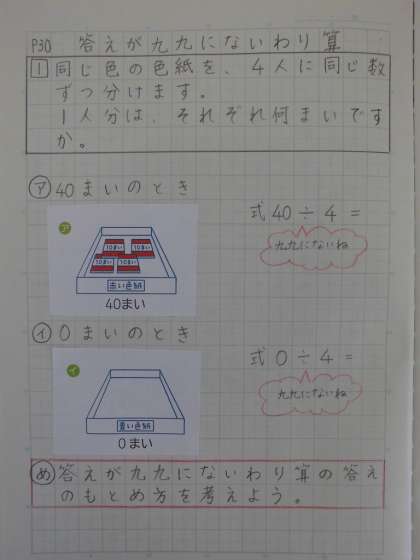 P30 答えが九九にないわり算
1 同じ色の色紙を、4人に同じ数
ずつ分けます。
1人分は、それぞれ何まいです
か。
ア 40まいのとき
式 40÷4=
九九にないね
ア
10まい 10まい
10まい 10まい
赤い色紙
40まい
イ 0まいのとき
式 0÷4=
九九にないね
イ
青い色紙
0まい
め 答えが九九にないわり算の答え
のもとめ方を考えよう。